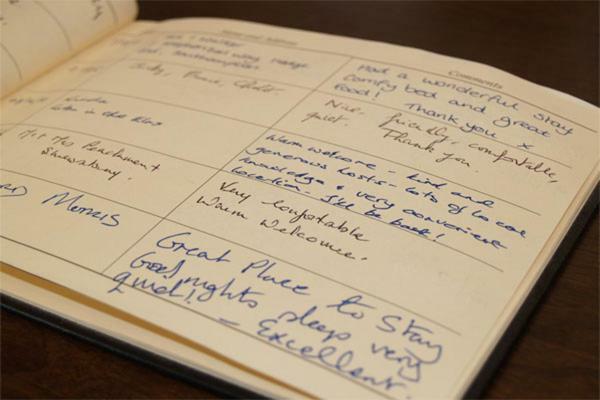 Name and Address
Comments
Southampton
Had a wonderful stay
Comfy bed and great
food! Thank you x
Judy,
Nice, friendly, comfortable,
quiet. Thank you.
in the
Warm welcome - kind and
generous hosts - lots of local
knowledge & very convenient
location. I'll be back!
Mr + Mrs Parchment
Shrewsbury.
Very comfortable
Warm welcome.
Morris
Great Place to Stay
Good nights sleep very
quiet! - Excellent.